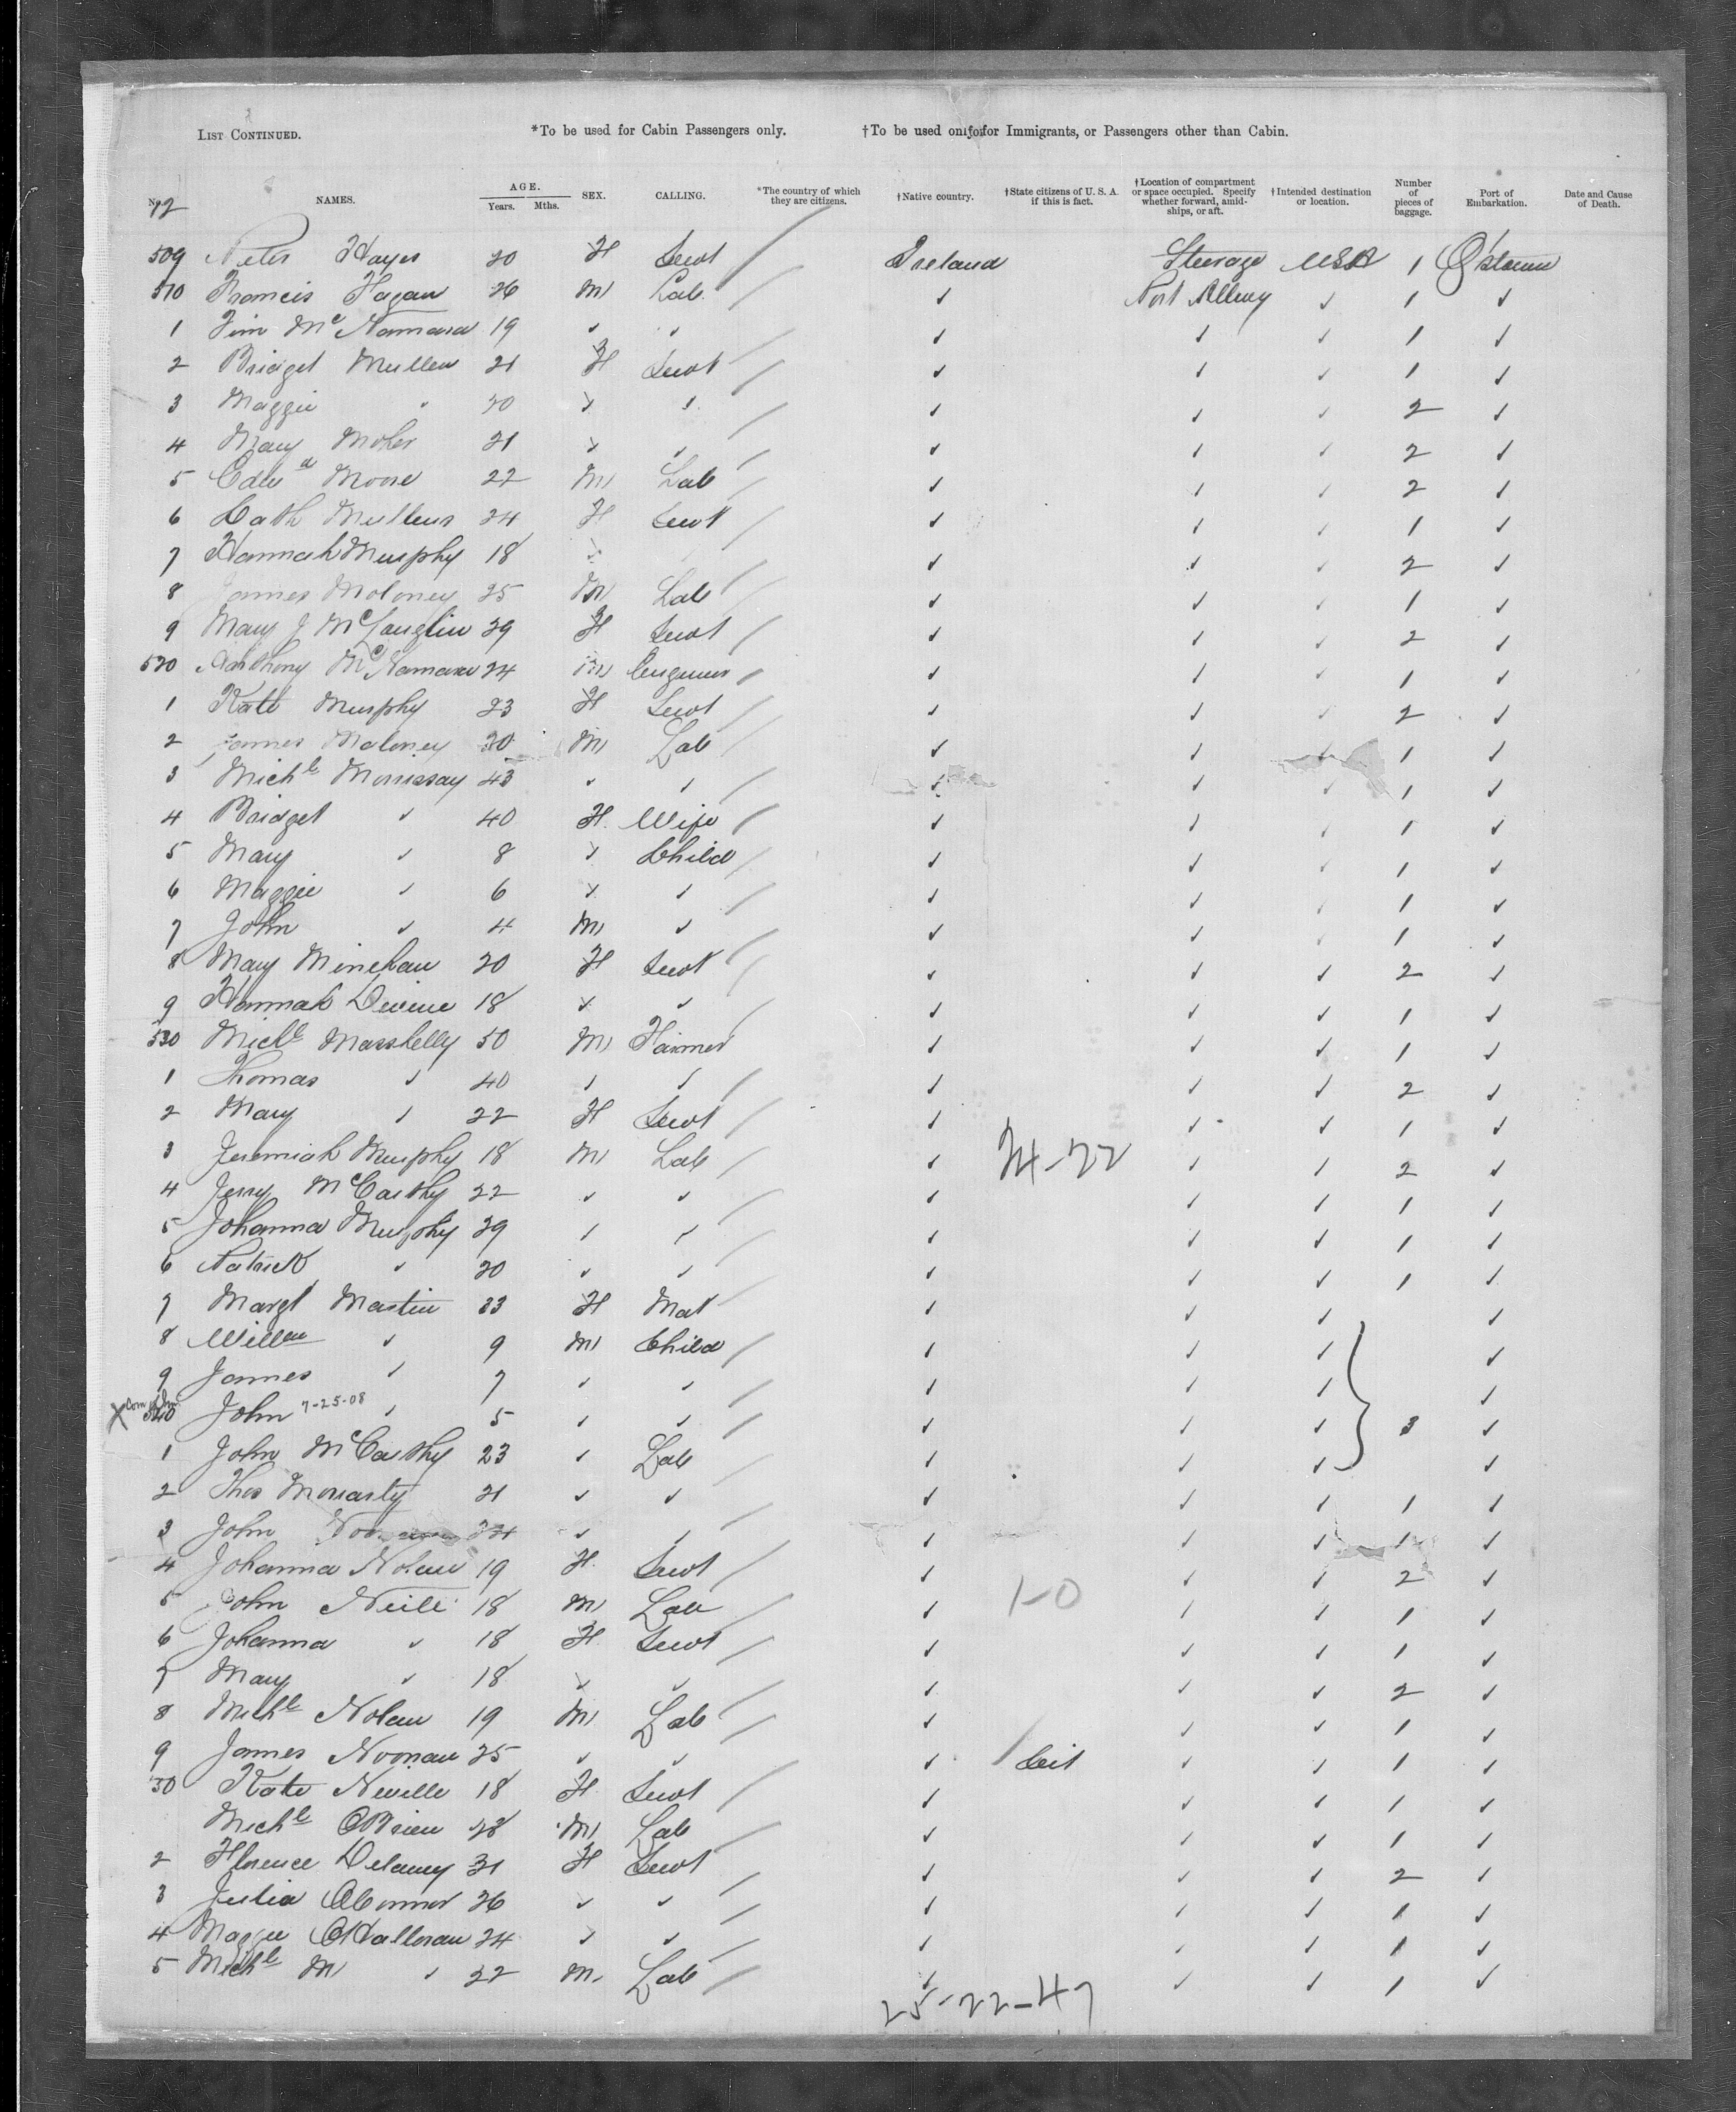 LIST CONTINUED. *To be used for Cabin Passengers only. †To be used only for Immigrants, or Passengers other than Cabin.
No. NAMES. AGE. Years. Mths. SEX. CALLING. *The country of which they are citizens. †Native country. †State citizens of U. S. A. if this is fact. †Location of compartment or space occupied. Specify whether forward, amidships, or aft. †Intended destination or location. Number of pieces of baggage. Port of Embarkation. Date and Cause of Death.
12
509 Hayes 20 F Servt / Ireland Steerage USA 1 Qstown
510 Francis Fagan 26 M Lab / ✓ Port Alleway ✓ 1 ✓
1 Tim McNamara 19 ✓ ✓ / ✓ ✓ ✓ 1 ✓
2 Bridget Mullen 21 F Servt / ✓ ✓ ✓ 1 ✓
3 Maggie ✓ 20 ✓ ✓ / ✓ ✓ ✓ 2 ✓
4 Mary Moher 21 ✓ ✓ / ✓ ✓ ✓ 2 ✓
5 Edwd Moore 22 M Lab / ✓ ✓ ✓ 2 ✓
6 Cath Mullens 24 F Servt / ✓ ✓ ✓ 1 ✓
7 Hannah Murphy 18 ✓ / ✓ ✓ ✓ 2 ✓
8 James Moloney 25 M Lab / ✓ ✓ ✓ 1 ✓
9 Mary J McLauglin 29 F Servt / ✓ ✓ ✓ 2 ✓
520 Anthony McNamara 24 M Engineer / ✓ ✓ ✓ 1 ✓
1 Kate Murphy 23 F Servt / ✓ ✓ ✓ 2 ✓
2 James Maloney 30 M Lab / ✓ ✓ ✓ 1 ✓
3 Michl Morrissay 43 ✓ ✓ / ✓ ✓ ✓ 1 ✓
4 Bridget ✓ 40 F Wife / ✓ ✓ ✓ 1 ✓
5 Mary ✓ 8 ✓ Child / ✓ ✓ ✓ 1 ✓
6 Maggie ✓ 6 ✓ ✓ / ✓ ✓ ✓ 1 ✓
7 John ✓ 4 M ✓ / ✓ ✓ ✓ 1 ✓
8 Mary Minehan 20 F Servt / ✓ ✓ ✓ 2 ✓
9 Hannah Devine 18 ✓ ✓ / ✓ ✓ ✓ 1 ✓
530 Michl Masskelly 50 M Farmer ✓ ✓ ✓ 1 ✓
1 Thomas ✓ 40 ✓ ✓ / ✓ ✓ ✓ 2 ✓
2 Mary ✓ 22 F Servt / ✓ ✓ ✓ 1 ✓
3 Jeremiah Murphy 18 M Lab / ✓ 24-22 ✓ ✓ 2 ✓
4 Jerry McCarthy 22 ✓ ✓ / ✓ ✓ ✓ 1 ✓
5 Johanna Murphy 29 ✓ ✓ / ✓ ✓ ✓ 1 ✓
6 Patrick ✓ 20 ✓ ✓ / ✓ ✓ ✓ 1 ✓
7 Margt Martin 33 F Mat / ✓ ✓ ✓ ✓
8 Willm ✓ 9 M Child / ✓ ✓ ✓ ✓
9 James ✓ 7 ✓ ✓ / ✓ ✓ ✓ ✓
X 540 John 7-25-08 ✓ 5 ✓ ✓ / ✓ ✓ ✓ 3 ✓
1 John McCarthy 23 ✓ Lab / ✓ ✓ ✓ ✓
2 Thos Moriarty 21 ✓ ✓ / ✓ ✓ ✓ 1 ✓
3 John 24 ✓ ✓ / ✓ ✓ ✓ 1 ✓
4 Johanna Nolan 19 F Servt / ✓ ✓ ✓ 2 ✓
5 John Neill 18 M Lab / ✓ 1-0 ✓ ✓ 1 ✓
6 Johanna ✓ 18 F Servt / ✓ ✓ ✓ 1 ✓
7 Mary ✓ 18 ✓ ✓ / ✓ ✓ ✓ 2 ✓
8 Michl Nolan 19 M Lab / ✓ ✓ ✓ 1 ✓
9 James Noonan 25 ✓ ✓ ✓ / Cit ✓ ✓ 1 ✓
50 Kate Neville 18 F Servt / ✓ ✓ ✓ 1 ✓
Michl OBrien 28 M Lab / ✓ ✓ ✓ 1 ✓
2 Florence Delaney 31 F Servt / ✓ ✓ ✓ 2 ✓
3 Julia OConnor 26 ✓ ✓ / ✓ ✓ ✓ 1 ✓
4 Maggie OHalloran 24 ✓ ✓ / ✓ ✓ ✓ 1 ✓
5 Michl M ✓ 22 M. Lab / ✓ ✓ ✓ 1 ✓
25-22-47